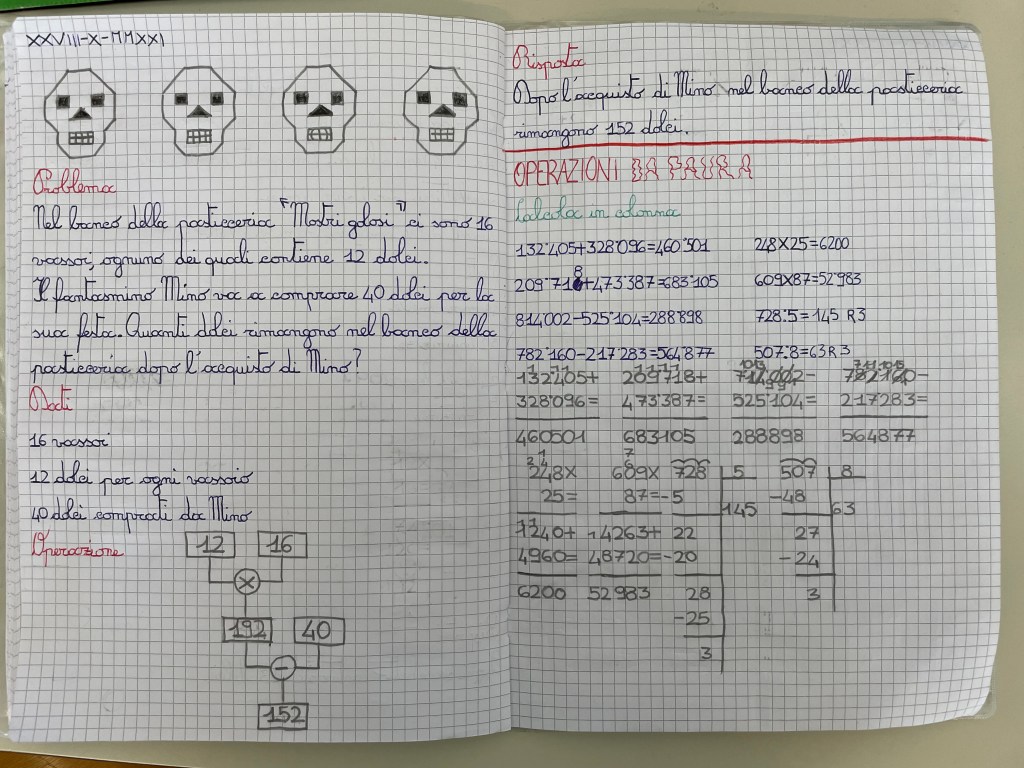 XXVIII-X-MMXXI
Problema
Nel banco della pasticceria "Mostri golosi" ci sono 16
vassoi, ognuno dei quali contiene 12 dolci.
Il fantasmino Mino va a comprare 40 dolci per la
sua festa. Quanti dolci rimangono nel banco della
pasticceria dopo l'acquisto di Mino?
Dati
16 vassoi
12 dolci per ogni vassoio
40 dolci comprati da Mino
Operazione
12 16
×
192 40
−
152
Risposta
Dopo l'acquisto di Mino nel banco della pasticceria
rimangono 152 dolci.
OPERAZIONI DA PAURA
Calcola in colonna
132'405+328'096=460'501 248×25=6200
209'718+473'387=683'105 609×87=52'983
814'002-525'104=288'898 728:5=145 R3
782'160-217'283=564'877 507:8=63 R3
132'405+ 209'718+ 814'002- 782'160-
328'096= 473'387= 525'104= 217283=
460501 683105 288898 564877
248× 609× 728 5 507 8
25= 87= -5 145 -48 63
1240+ 4263+ 22 27
4960= 48720= -20 -24
6200 52983 28 3
-25
3